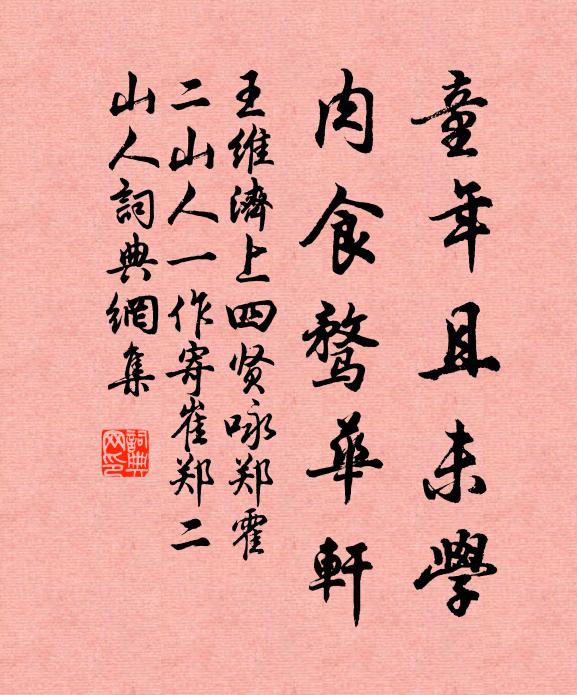 童年且未學
肉食鶩華軒
王维濟上四贤咏郑霍
二山人一作寄崔郑二
山人詞典網集
詞典
网印